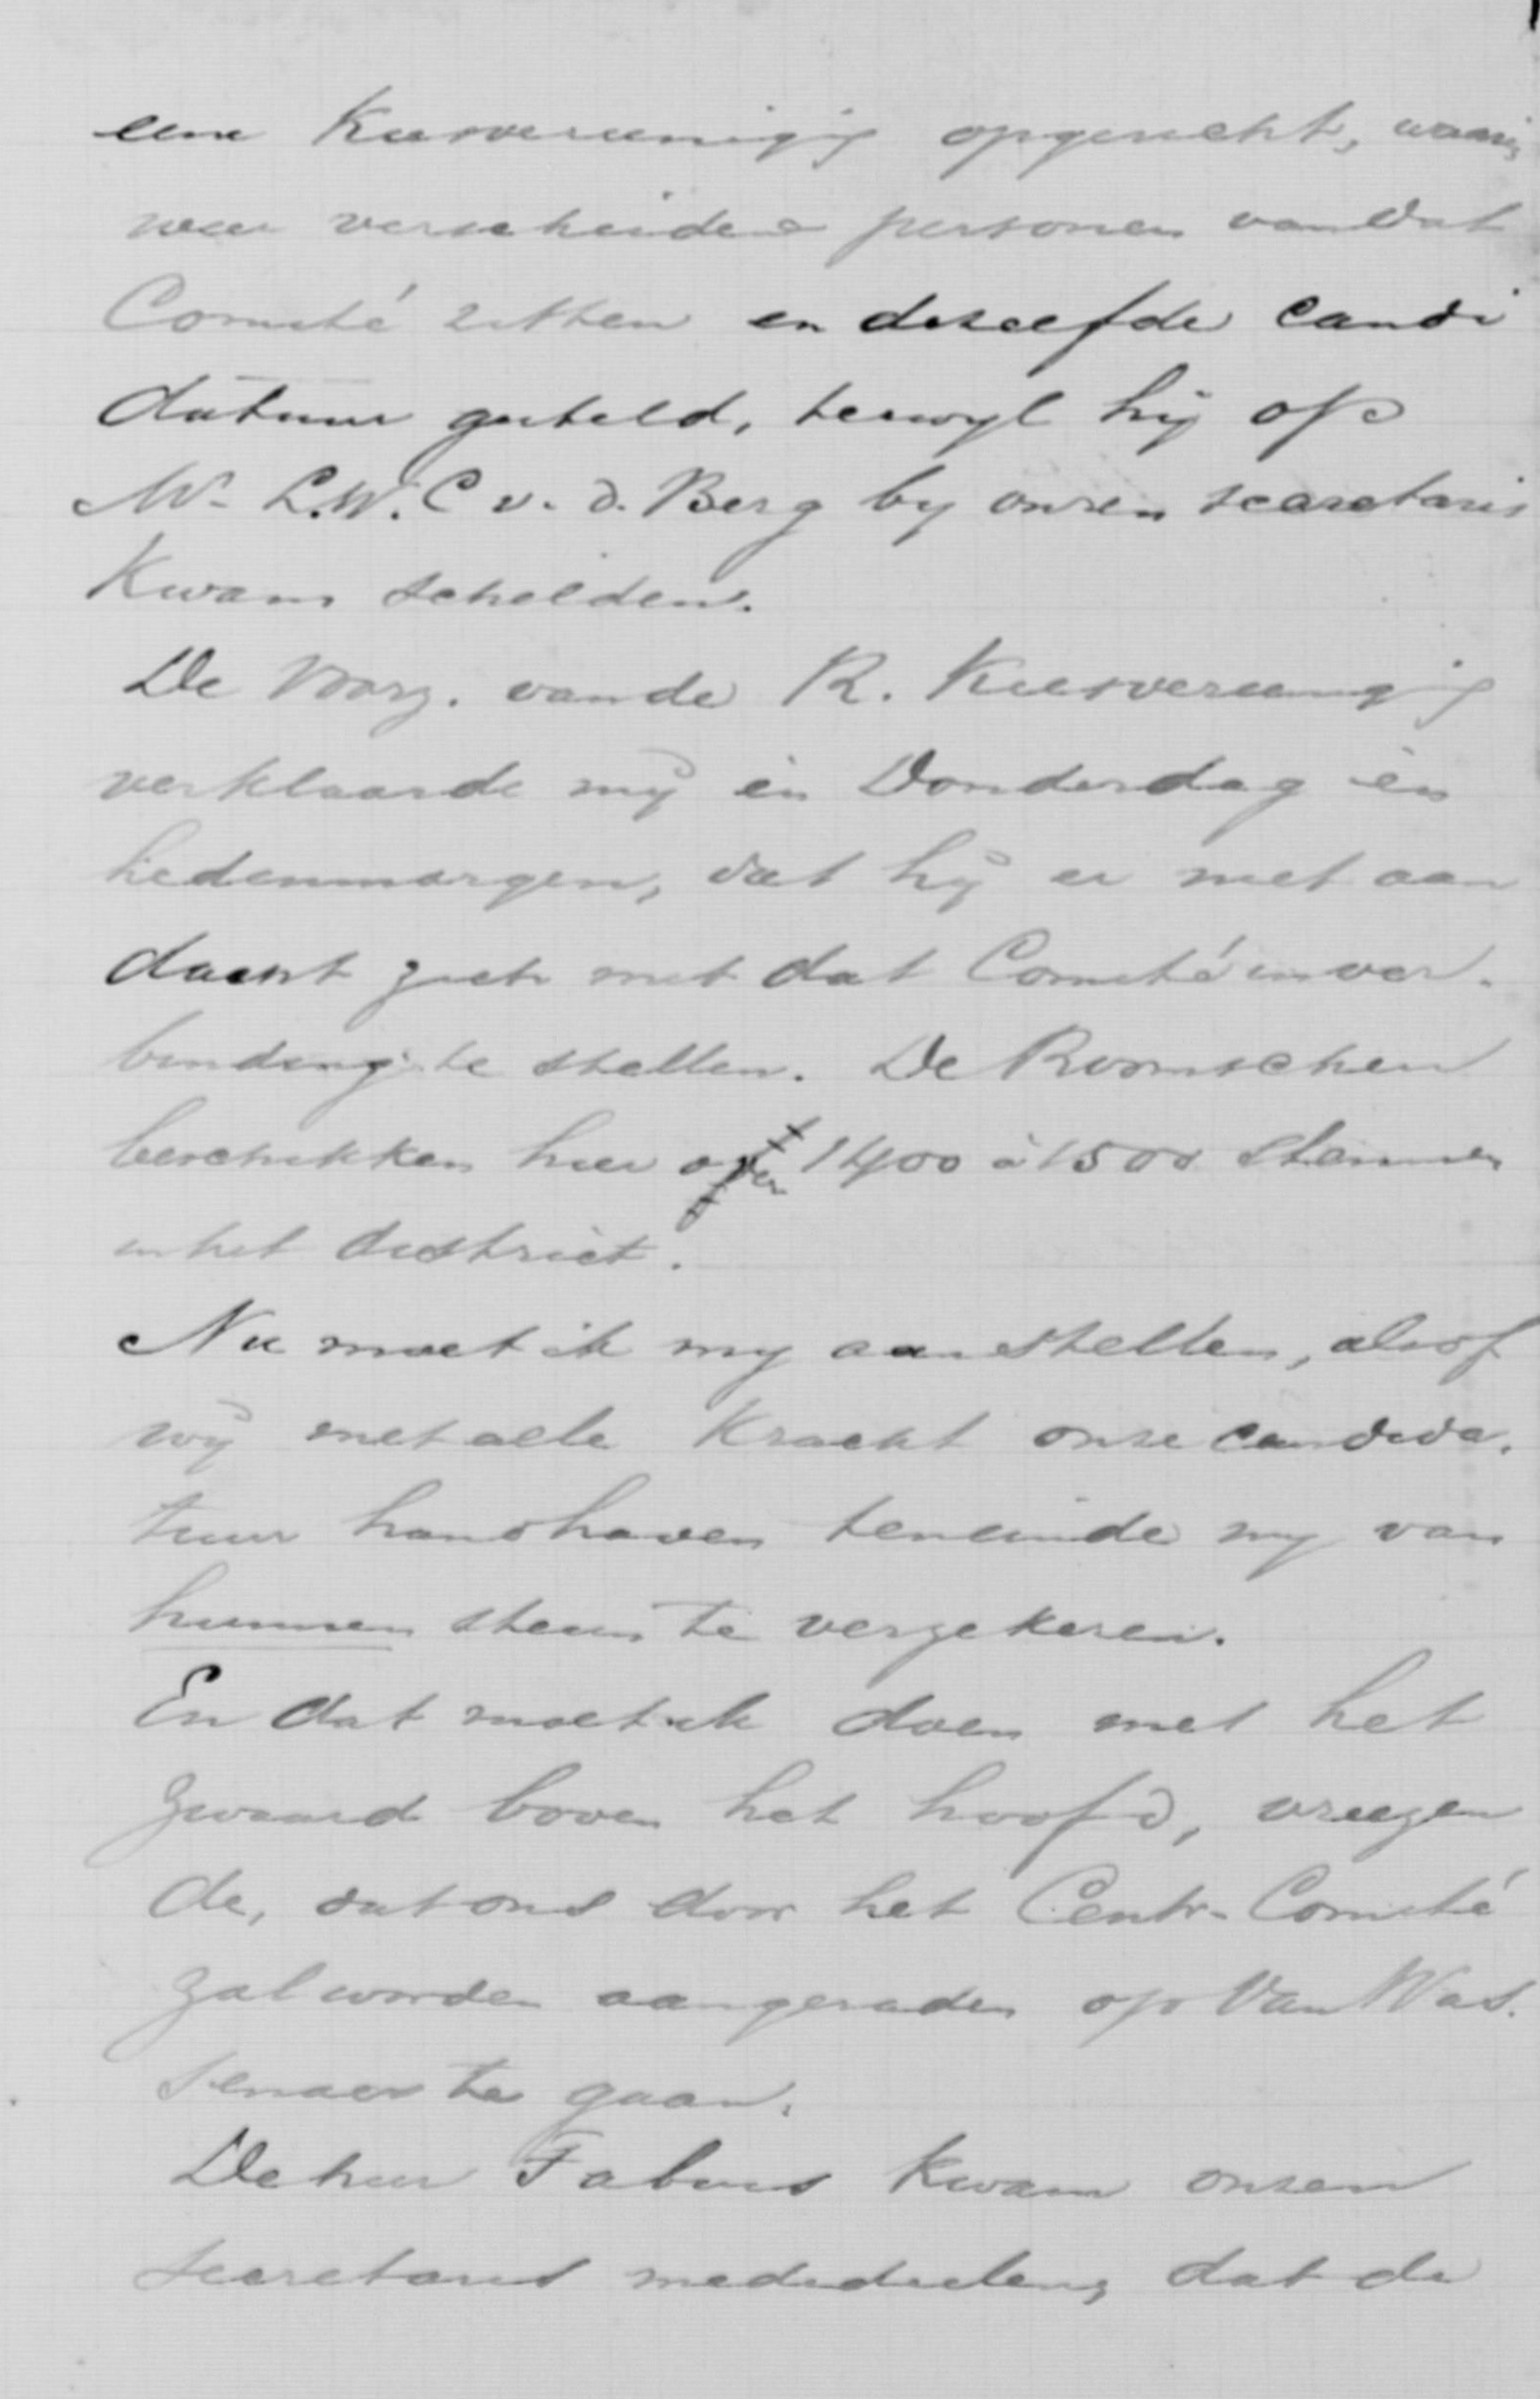 eene Kiesvereeniging opgericht, waarin
weer verscheidene personen van dat
Comité zitten en dezelfde candi
datuur gesteld, terwyl hij op
Mr. L.W.C v. d. Berg by onzen secretaris
Kwam schelden.
De Voorz. van de R. Kiesvereeniging
verklaarde mij èn Donderdag èn
hedenmorgen, dat hij er niet aan
dacht zich met dat Comité in ver-
binding te stellen. De Roomschen
beschikken hier over 1400 à 1500 stemmen
in het district.
Nu moet ik my aanstellen, alsof
wij met alle Kracht onze candida-
tuur handhaven teneinde my van
hunnen steun te verzekeren.
En dat moet ik doen met het
zwaard boven het hoofd, vreezen
de, dat ons door het Centr. Comité
zal worden aangeraden op Van Was-
senaer te gaan.
De heer Fabius Kwam onzen
secretaris mededeelen, dat de